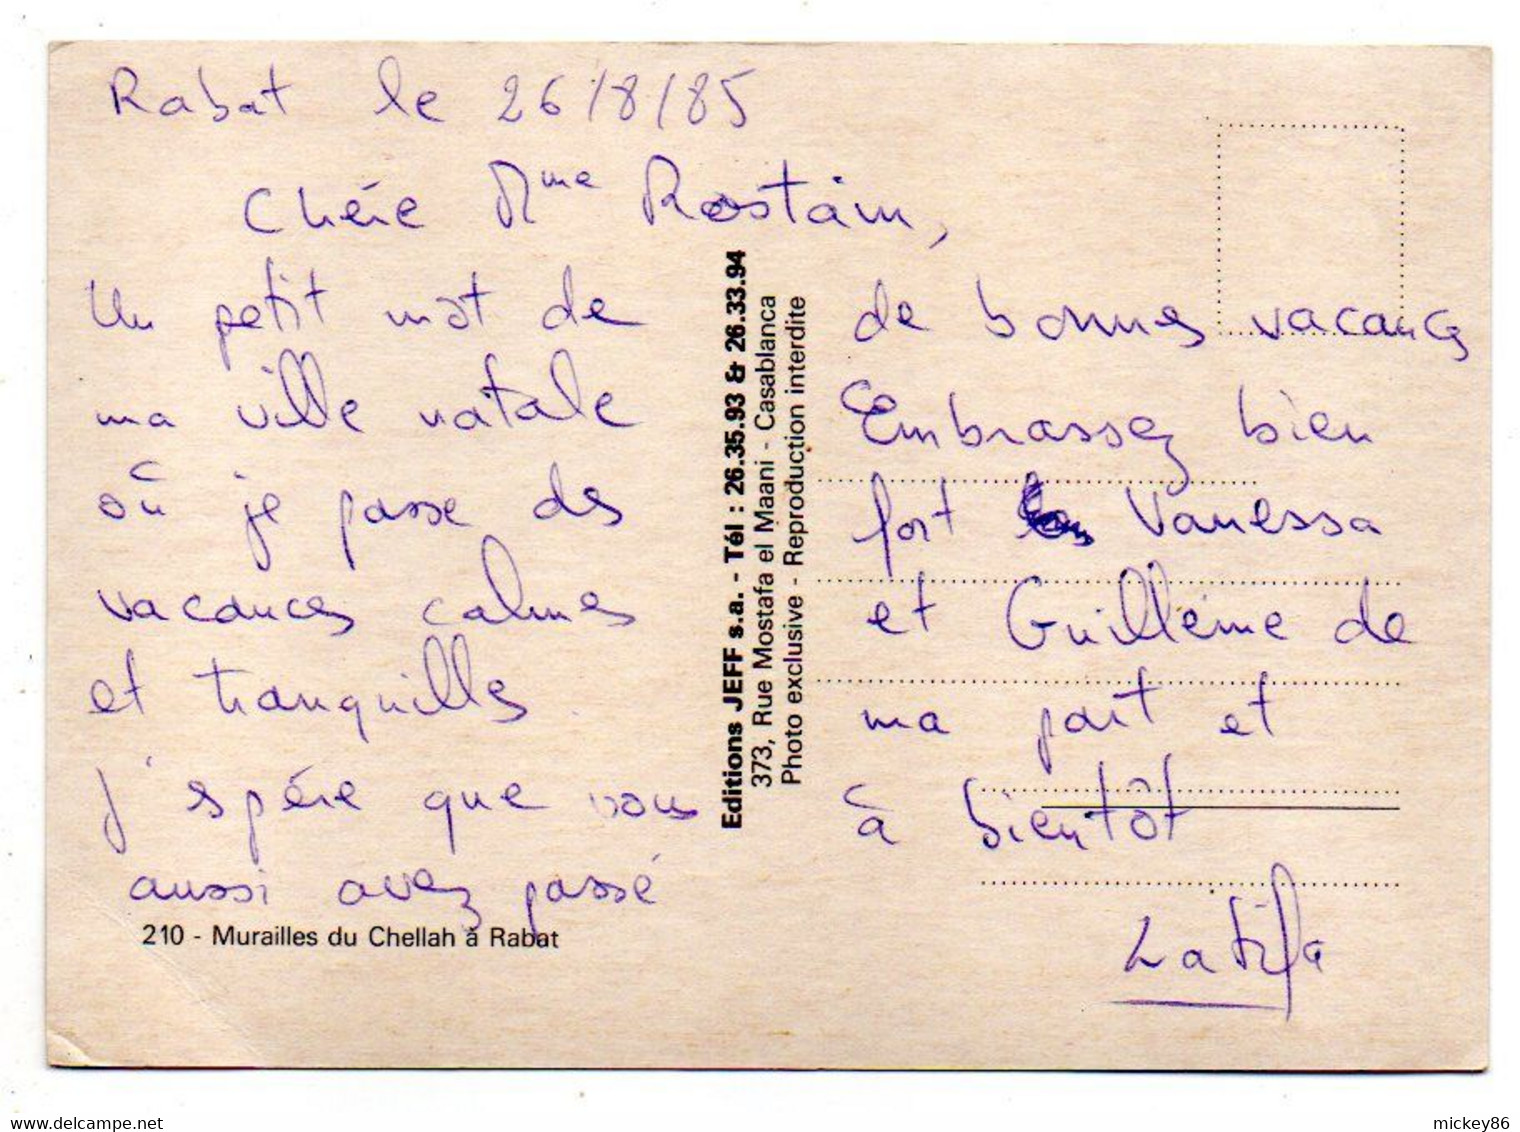 Rabat le 26/8/85
Chère Mme Rostain,
Un petit mot de
ma ville natale
où je passe des
vacances calmes
et tranquilles.
J'espére que vous
aussi avez passé
210 - Murailles du Chellah à Rabat
Editions JEFF s.a. - Tél : 26.35.93 & 26.33.94
373, Rue Mostafa el Maani - Casablanca
Photo exclusive - Reproduction interdite
de bonnes vacances
Embrassez bien
fort Vanessa
et Guilleme de
ma part et
à bientôt
Latifa
mickey86